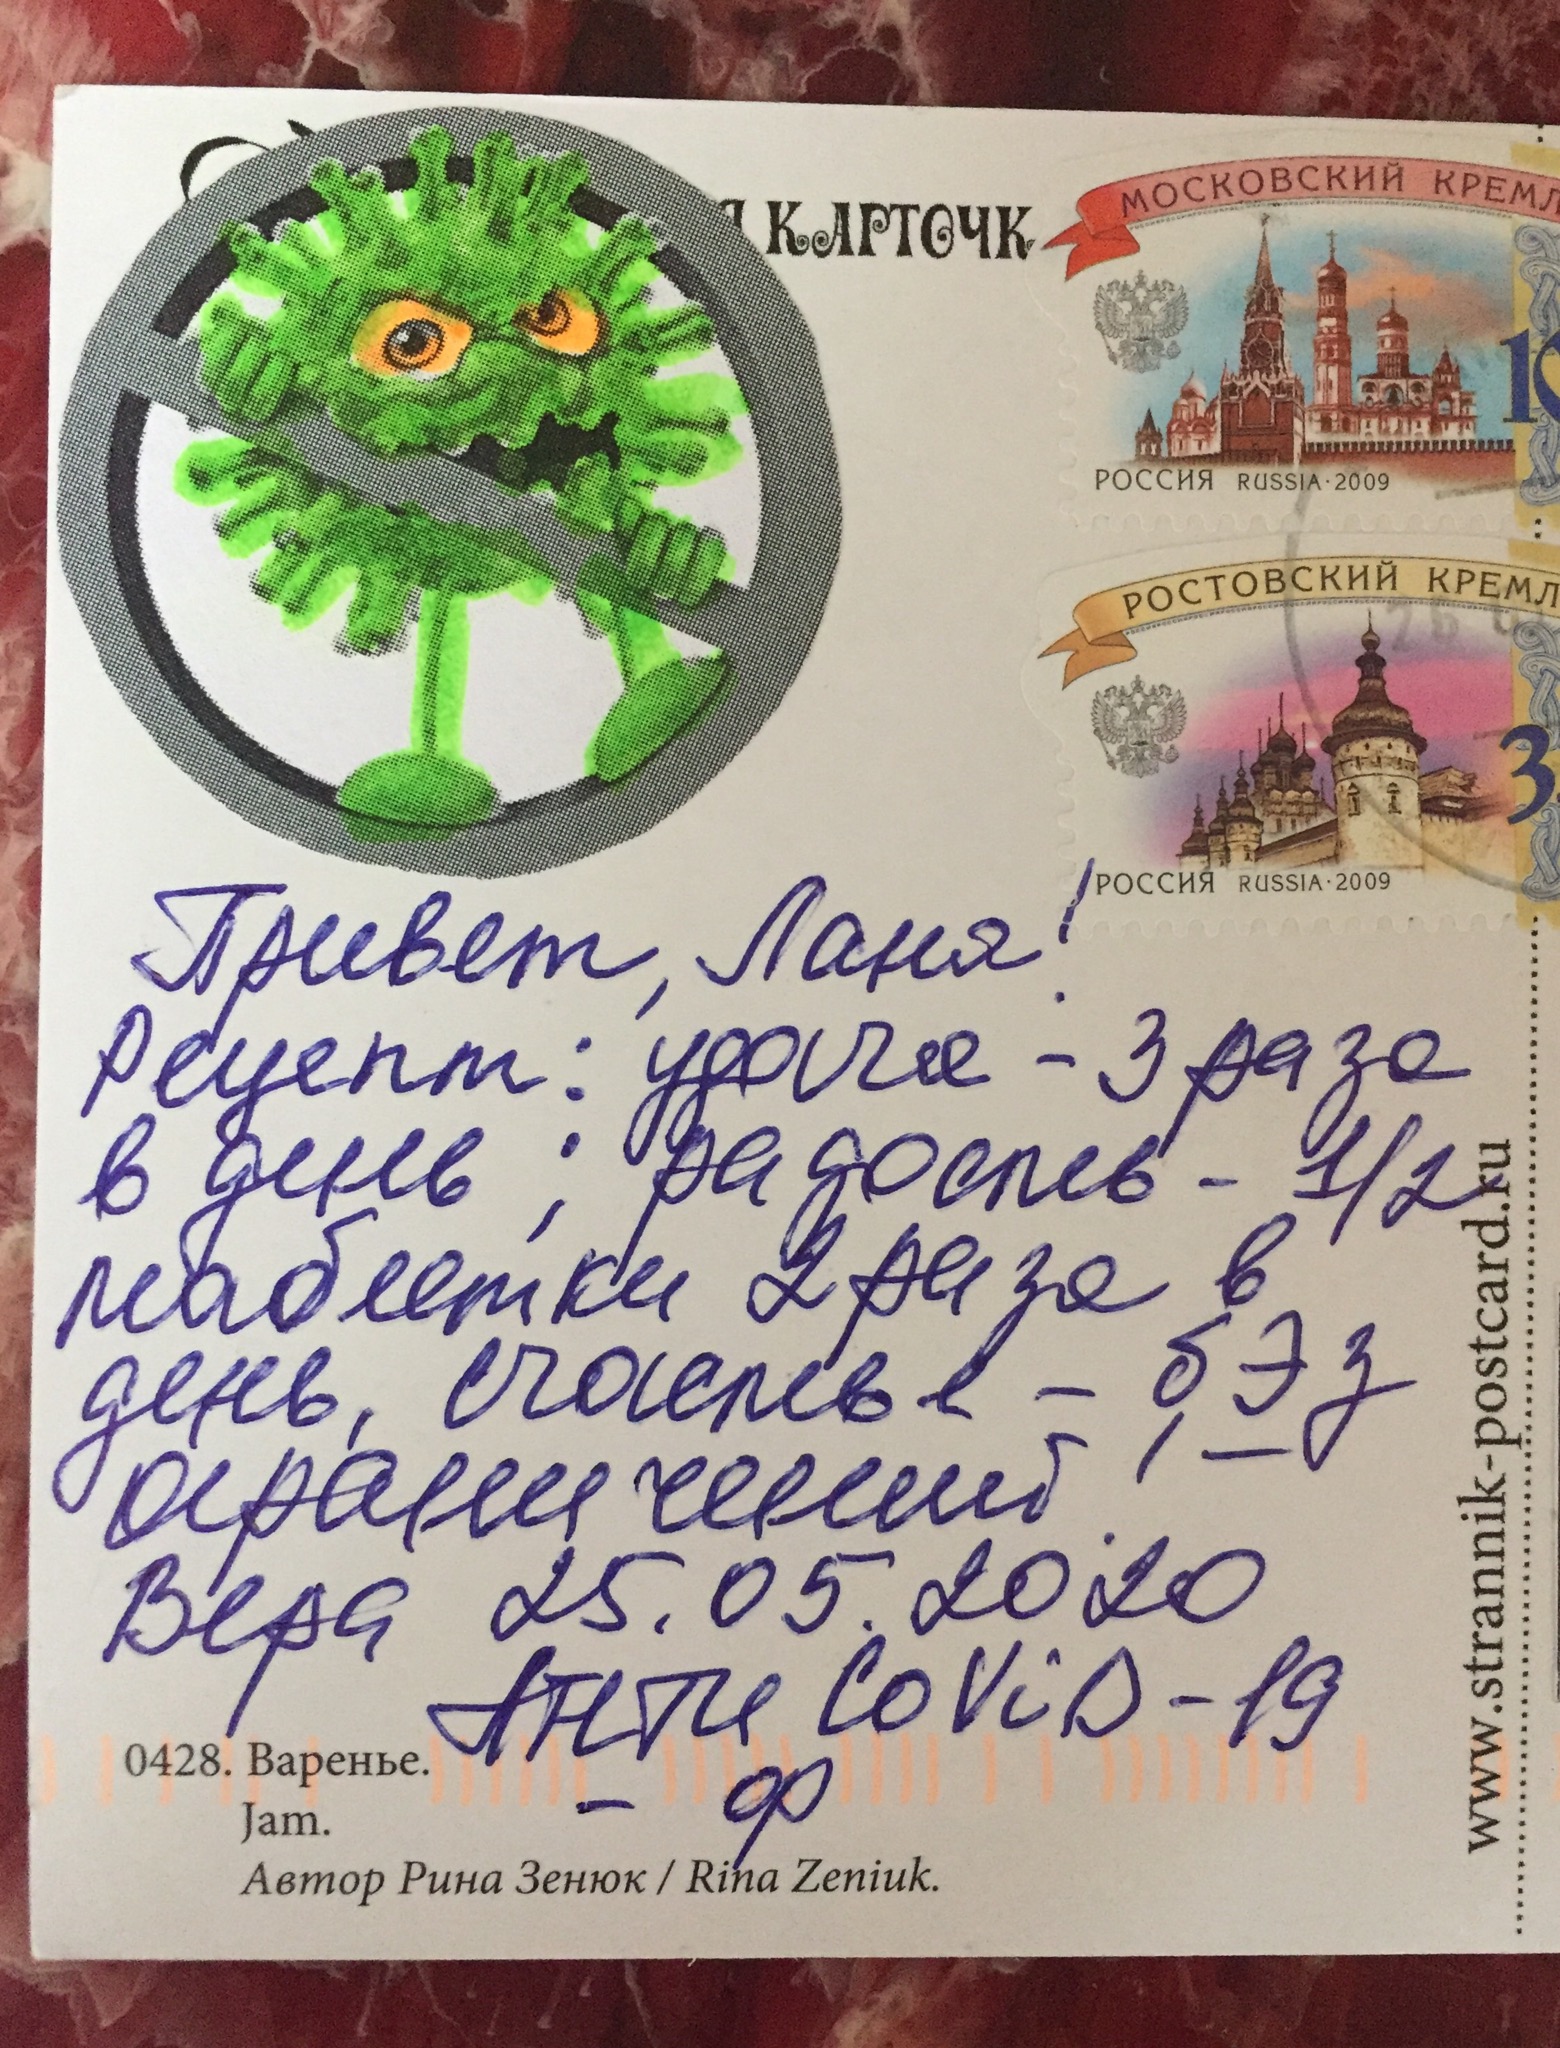 КАРТОЧК
МОСКОВСКИЙ КРЕМЛ
10
РОССИЯ RUSSIA·2009
РОСТОВСКИЙ КРЕМЛ
3
РОССИЯ RUSSIA·2009
Привет, Ланя!
Рецепт: удача - 3 раза
в день; радость - 1/2
таблетки 2 раза в
день, счастье - бЭз
ограничений!
Вера 25.05.2020
АНТИ CoViD-19
- Ф
0428. Варенье.
Jam.
Автор Рина Зенюк / Rina Zeniuk.
www.strannik-postcard.ru